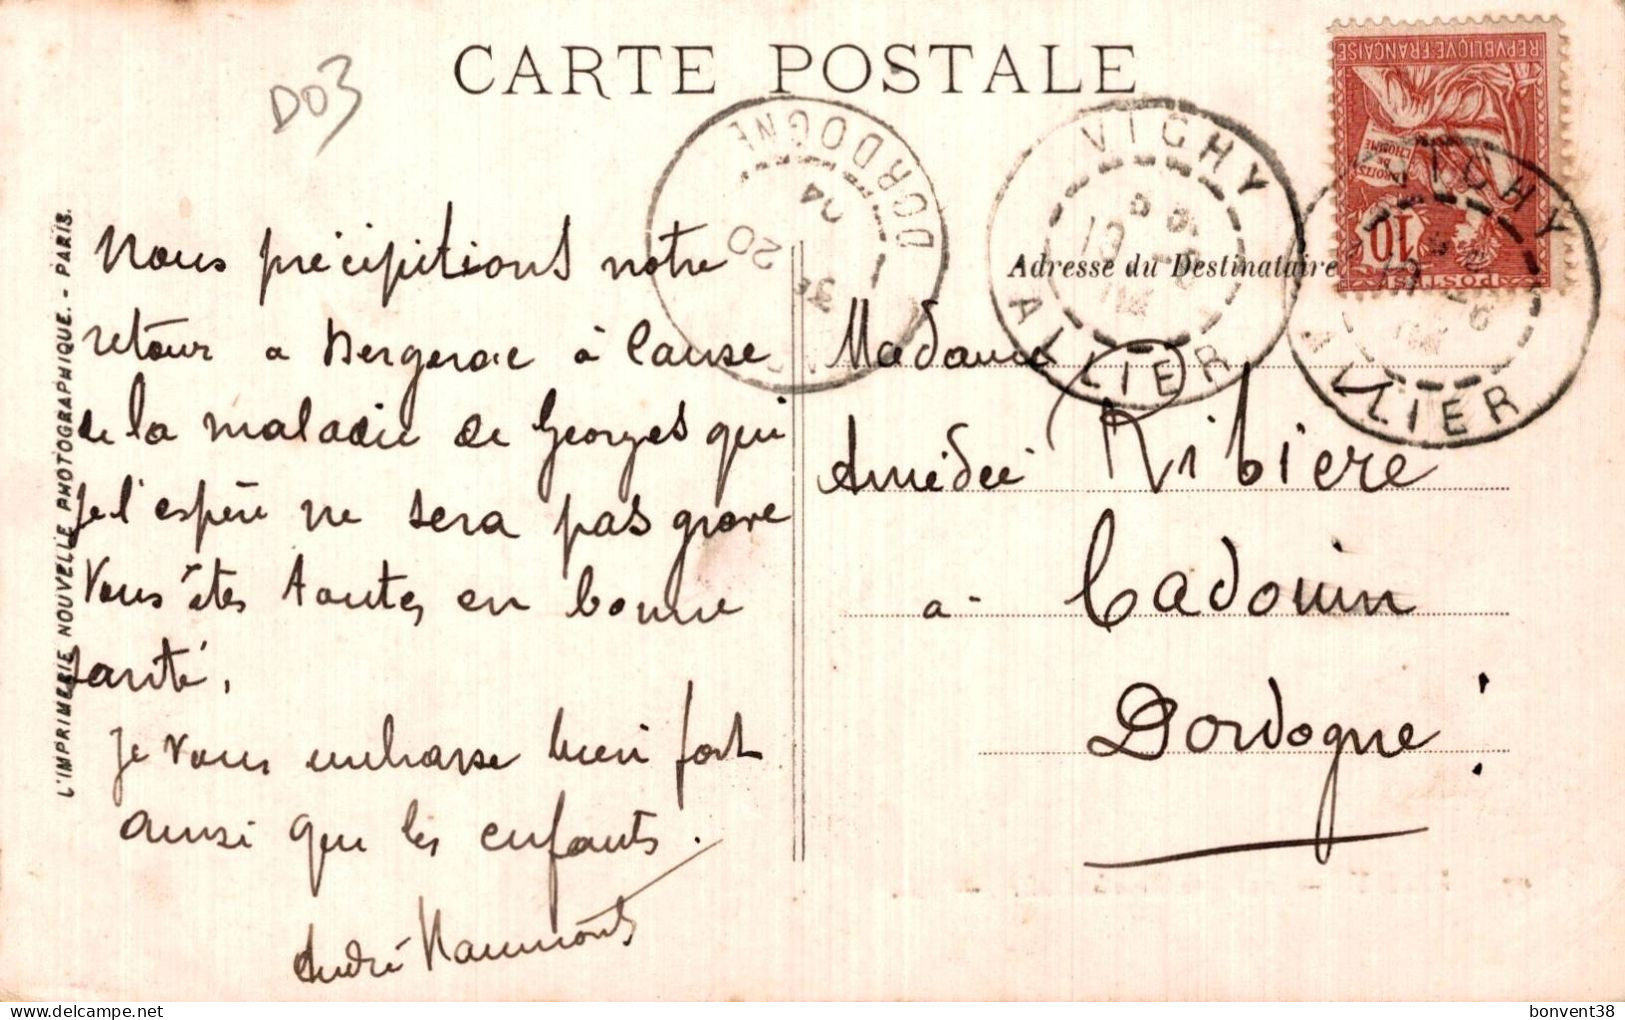 CARTE POSTALE
D03
L'IMPRIMERIE NOUVELLE PHOTOGRAPHIQUE. - PARIS.
Nous précipitions notre
retour a Bergerac à cause
de la maladie de Georges qui
je l'espère ne sera pas grave
Vous êtes toutes en bonne
santé.
Je vous embrasse bien fort
ainsi que les enfants.
André
Adresse du Destinataire
Madame
Amédée Ribiere
a Cadouin
Dordogne
DORDOGNE
20
04
VICHY
ALLIER
VICHY
ALLIER
REPVBLIQVE FRANÇAISE
DROITS DE L'HOMME
10
POSTES
bonvent38